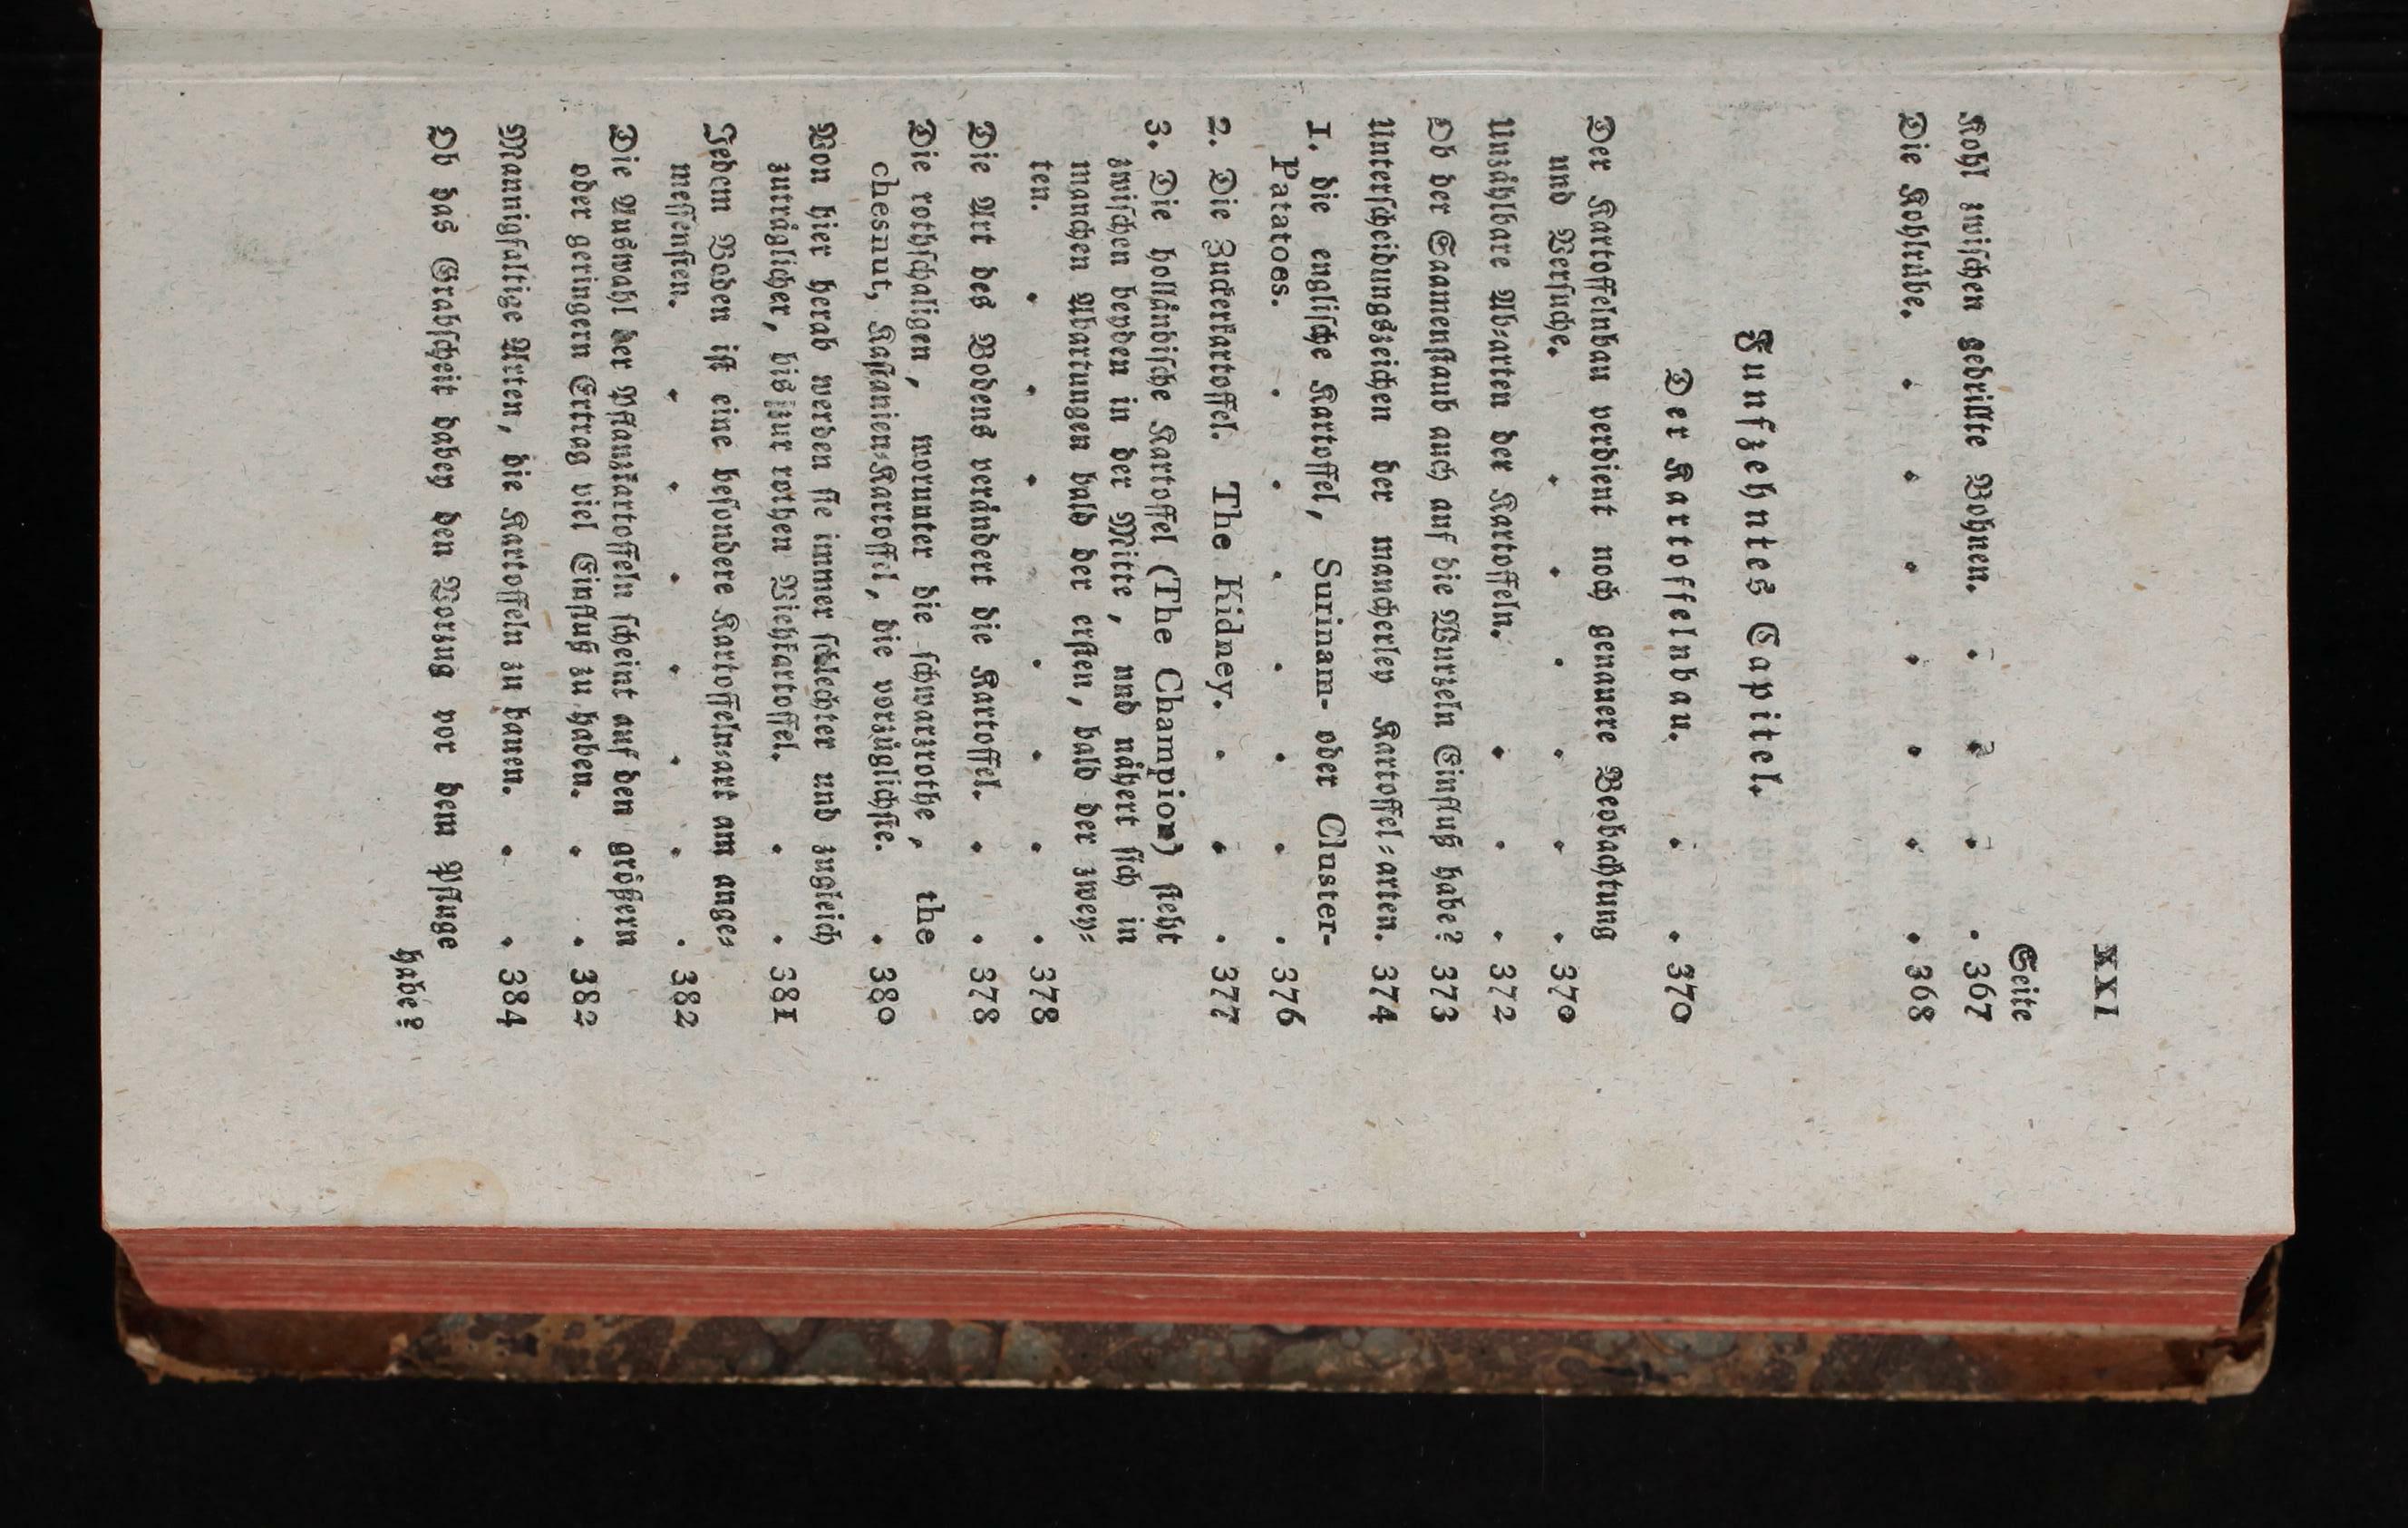 XXI
Seite
Kohl zwischen gedrillte Bohnen. . . . . 367
Die Kohlrübe. . . . . . . . 368
Funfzehntes Capitel.
Der Kartoffelnbau. . . 370
Der Kartoffelnbau verdient noch genauere Beobachtung
und Versuche. . . . . . . 370
Unzählbare Ab-arten der Kartoffeln. . . . 372
Ob der Saamenstaub auch auf die Wurzeln Einfluß habe? 373
Unterscheidungszeichen der mancherley Kartoffel-arten. 374
1. die englische Kartoffel, Surinam- oder Cluster-
Patatoes. . . . . . . . 376
2. Die Zuckerkartoffel. The Kidney. . . . 377
3. Die holländische Kartoffel (The Champion) steht
zwischen beyden in der Mitte, und nähert sich in
manchen Abartungen bald der ersten, bald der zwey-
ten. . . . . . . . 378
Die Art des Bodens verändert die Kartoffel. . . 378
Die rothschaligen, worunter die schwarzrothe, the
chesnut, Kastanien-Kartoffel, die vorzüglichste. . 380
Von hier herab werden sie immer schlechter und zugleich
zuträglicher, bis zur rothen Viehkartoffel. . . 381
Jedem Boden ist eine besondere Kartoffeln-art am ange-
messensten. . . . . . . . 382
Die Auswahl der Pflanzkartoffeln scheint auf den größern
oder geringern Ertrag viel Einfluß zu haben. . . 382
Mannigfaltige Arten, die Kartoffeln zu bauen. . . 384
Ob das Grabscheit dabey den Vorzug vor dem Pfluge
habe?